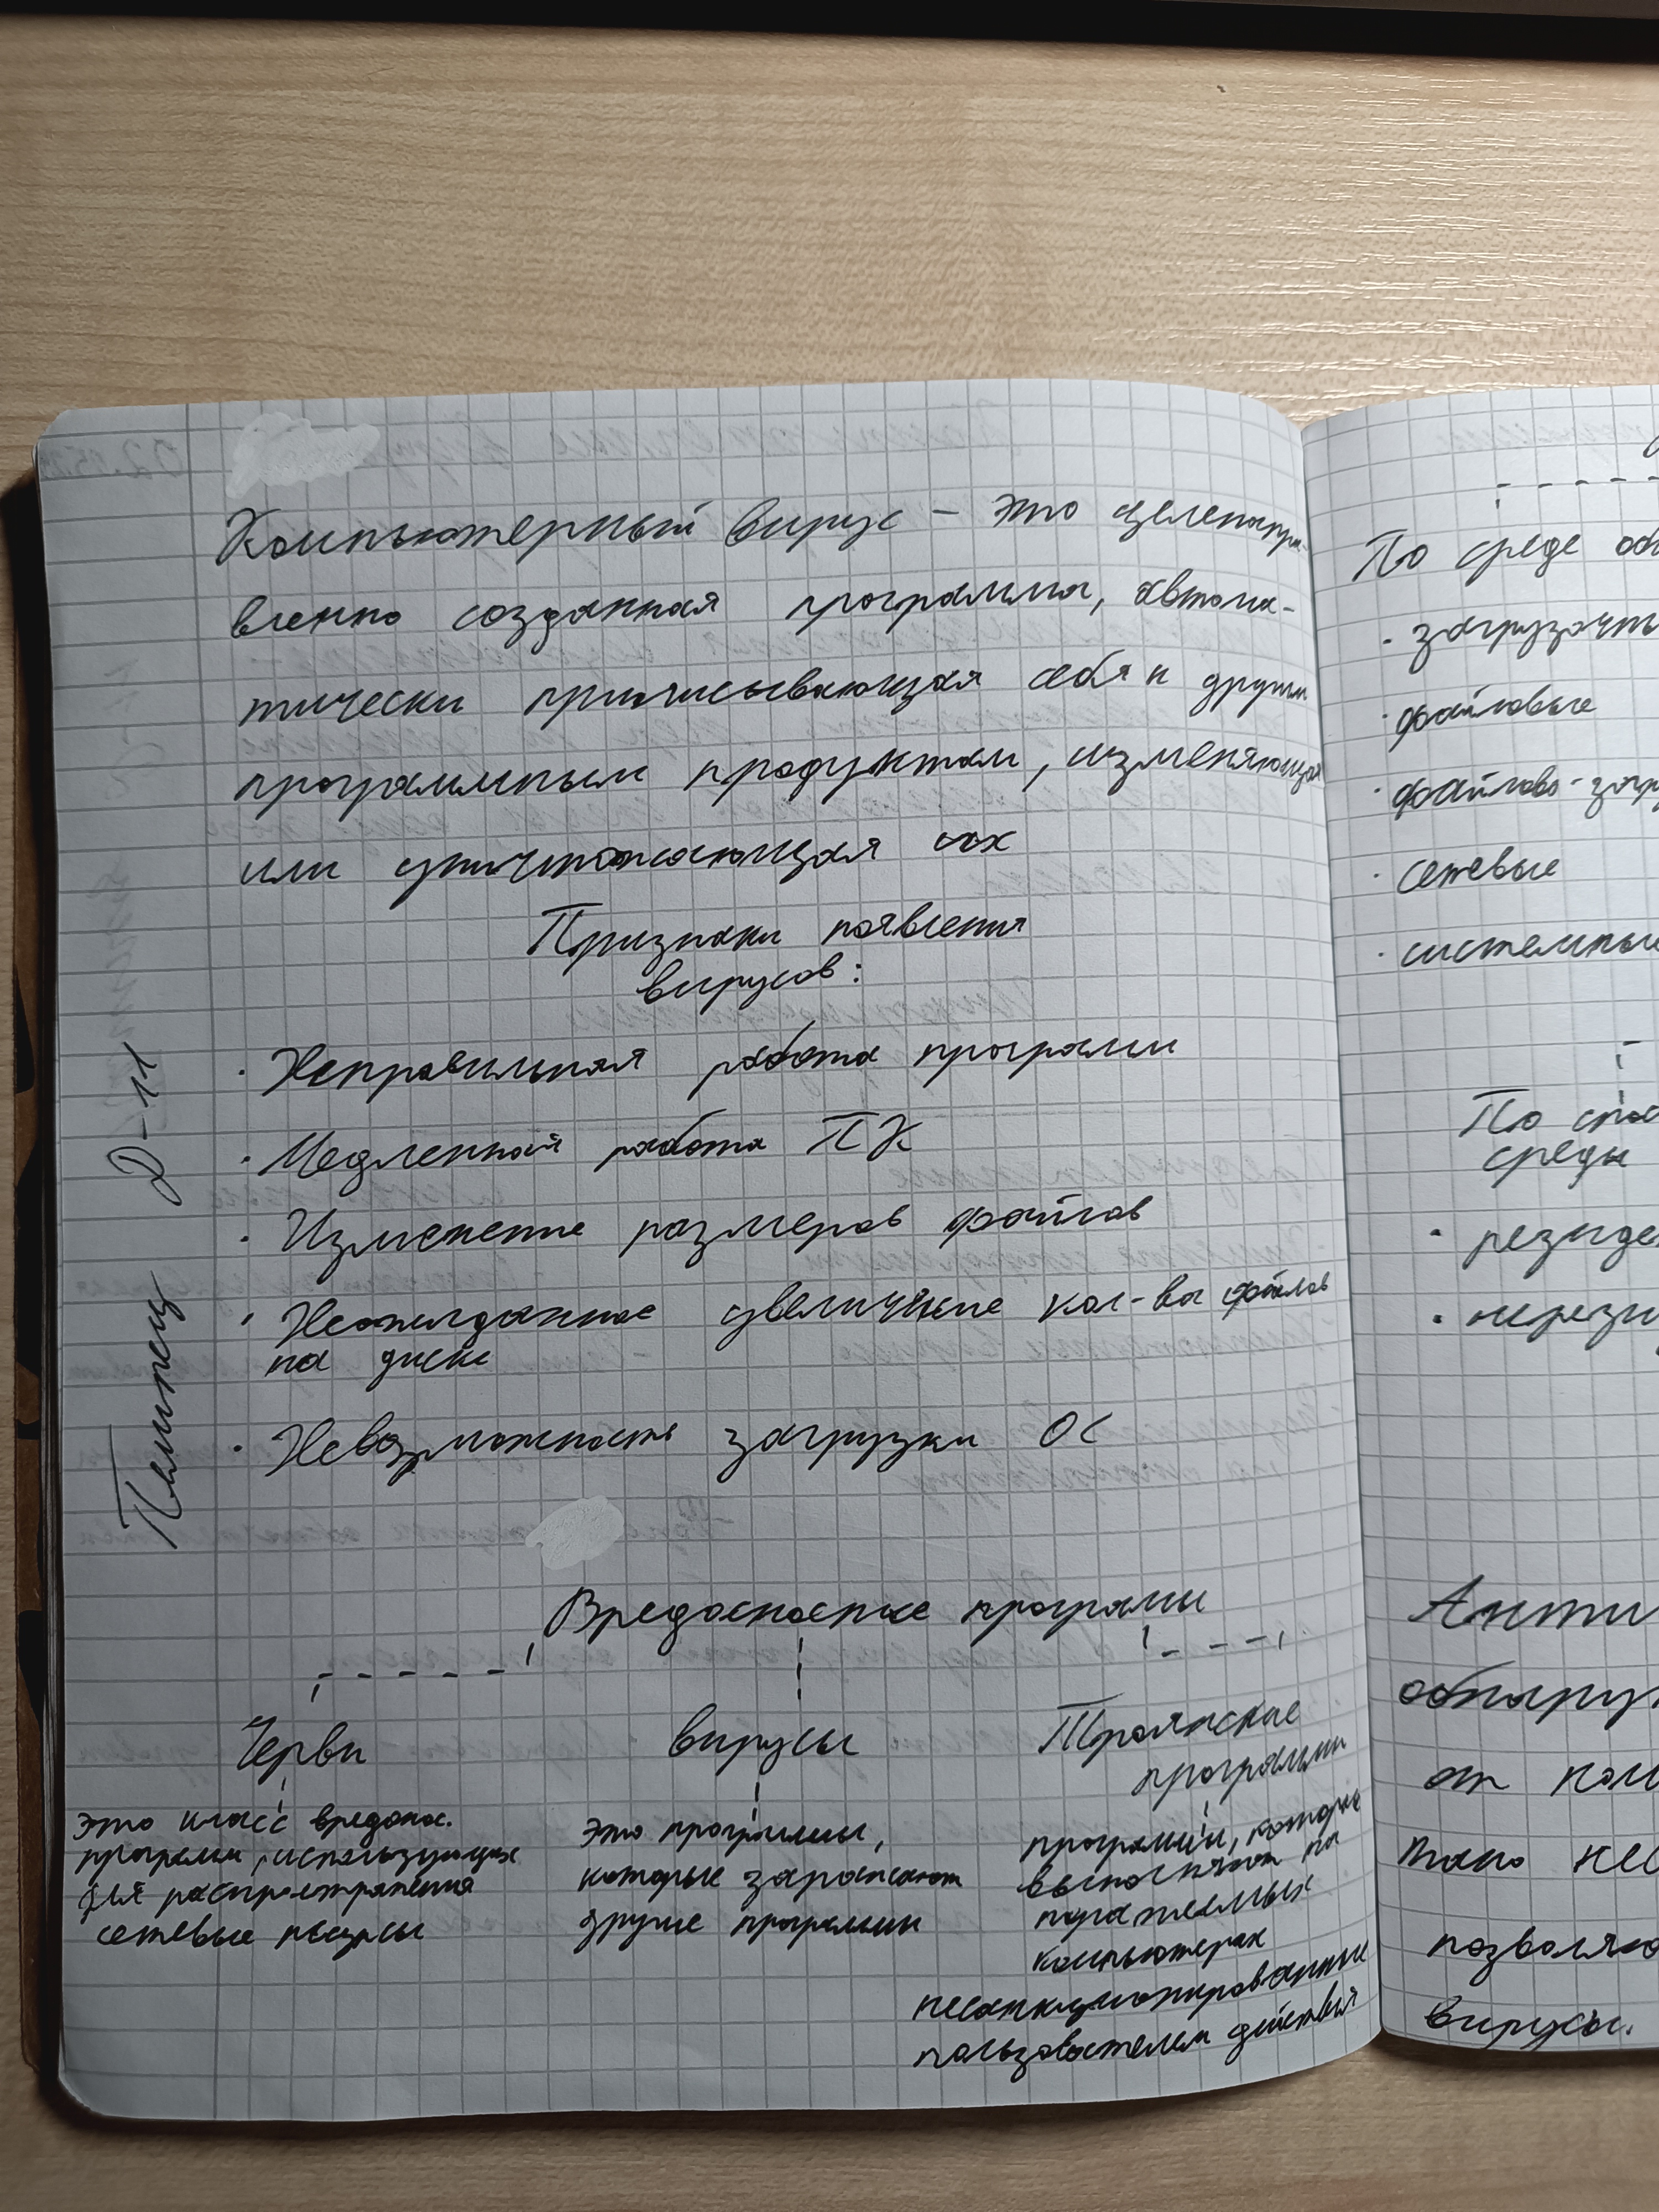 Компьютерный вирус – это целенапра-
вленно созданная программа, автома-
тически приписывающая себя к другим
программным продуктам, изменяющая
или уничтожающая их
Признаки появления
вирусов:
· Неправильная работа программ
· Медленная работа ПК
· Изменение размеров файлов
· Неожиданное увеличение кол-ва файлов
на диске
· Невозможность загрузки ОС
Д-11
Вредоносные программы
Черви
это класс вредонос.
программ, использующих
для распространения
сетевые ресурсы
вирусы
это программы,
которые заражают
другие программы
Троянские
программы
программы, которые
выполняют на
поражаемых
компьютерах
несанкционированные
пользователем действия
По среде
· загрузочны
· файловые
· файлово-загру
· сетевые
· системные
По спос
среды
· резиде
· нерези
Анти
обнаруж
от ком
тако нео
позволяю
вирусы.